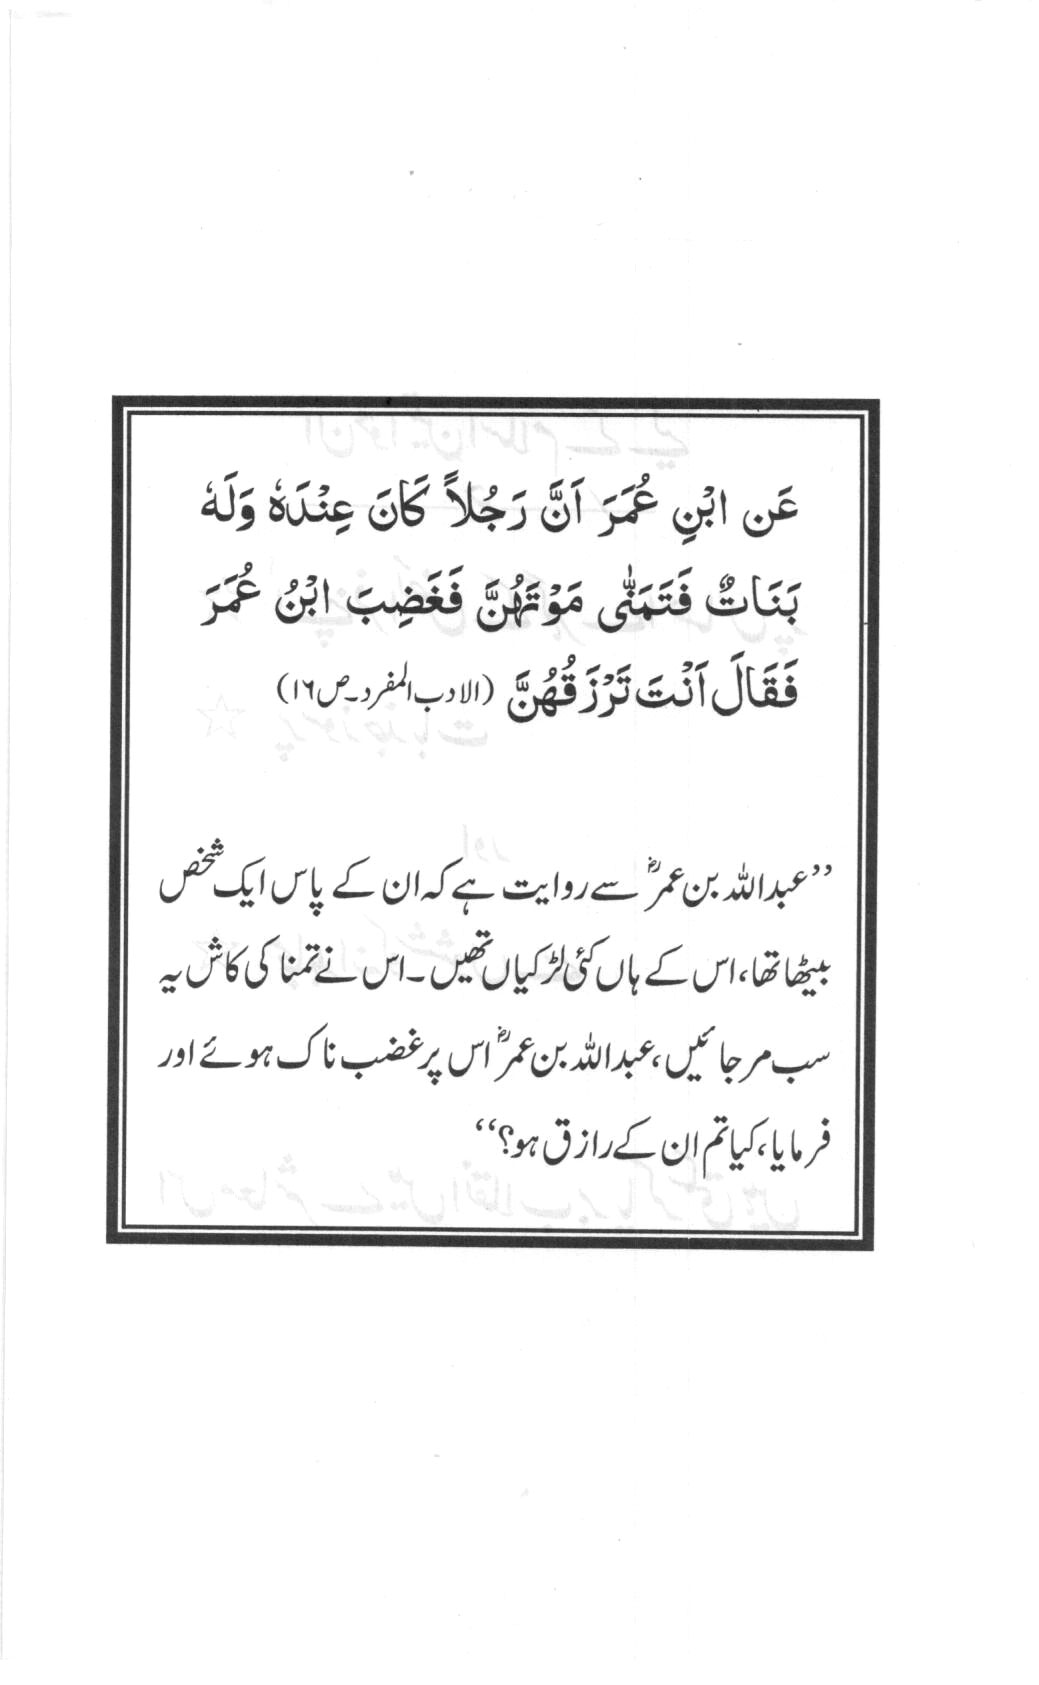 عَن ابْنِ عُمَرَ اَنَّ رَجُلاً کَانَ عِنْدَہٗ وَلَہٗ
بَنَاتٌ فَتَمَنّٰی مَوْتَہُنَّ فَغَضِبَ ابْنُ عُمَرَ
فَقَالَ اَنْتَ تَرْزَقُہُنَّ (الادب المفرد۔ص۱۶)
”عبداللہ بن عمرؓ سے روایت ہے کہ ان کے پاس ایک شخص
بیٹھا تھا، اس کے ہاں کئی لڑکیاں تھیں۔ اس نے تمنا کی کاش یہ
سب مر جائیں، عبداللہ بن عمرؓ اس پر غضب ناک ہوئے اور
فرمایا، کیا تم ان کے رازق ہو؟“